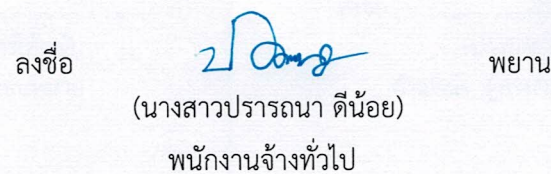 ลงชื่อ พยาน
(นางสาวปรารถนา ดีน้อย)
พนักงานจ้างทั่วไป